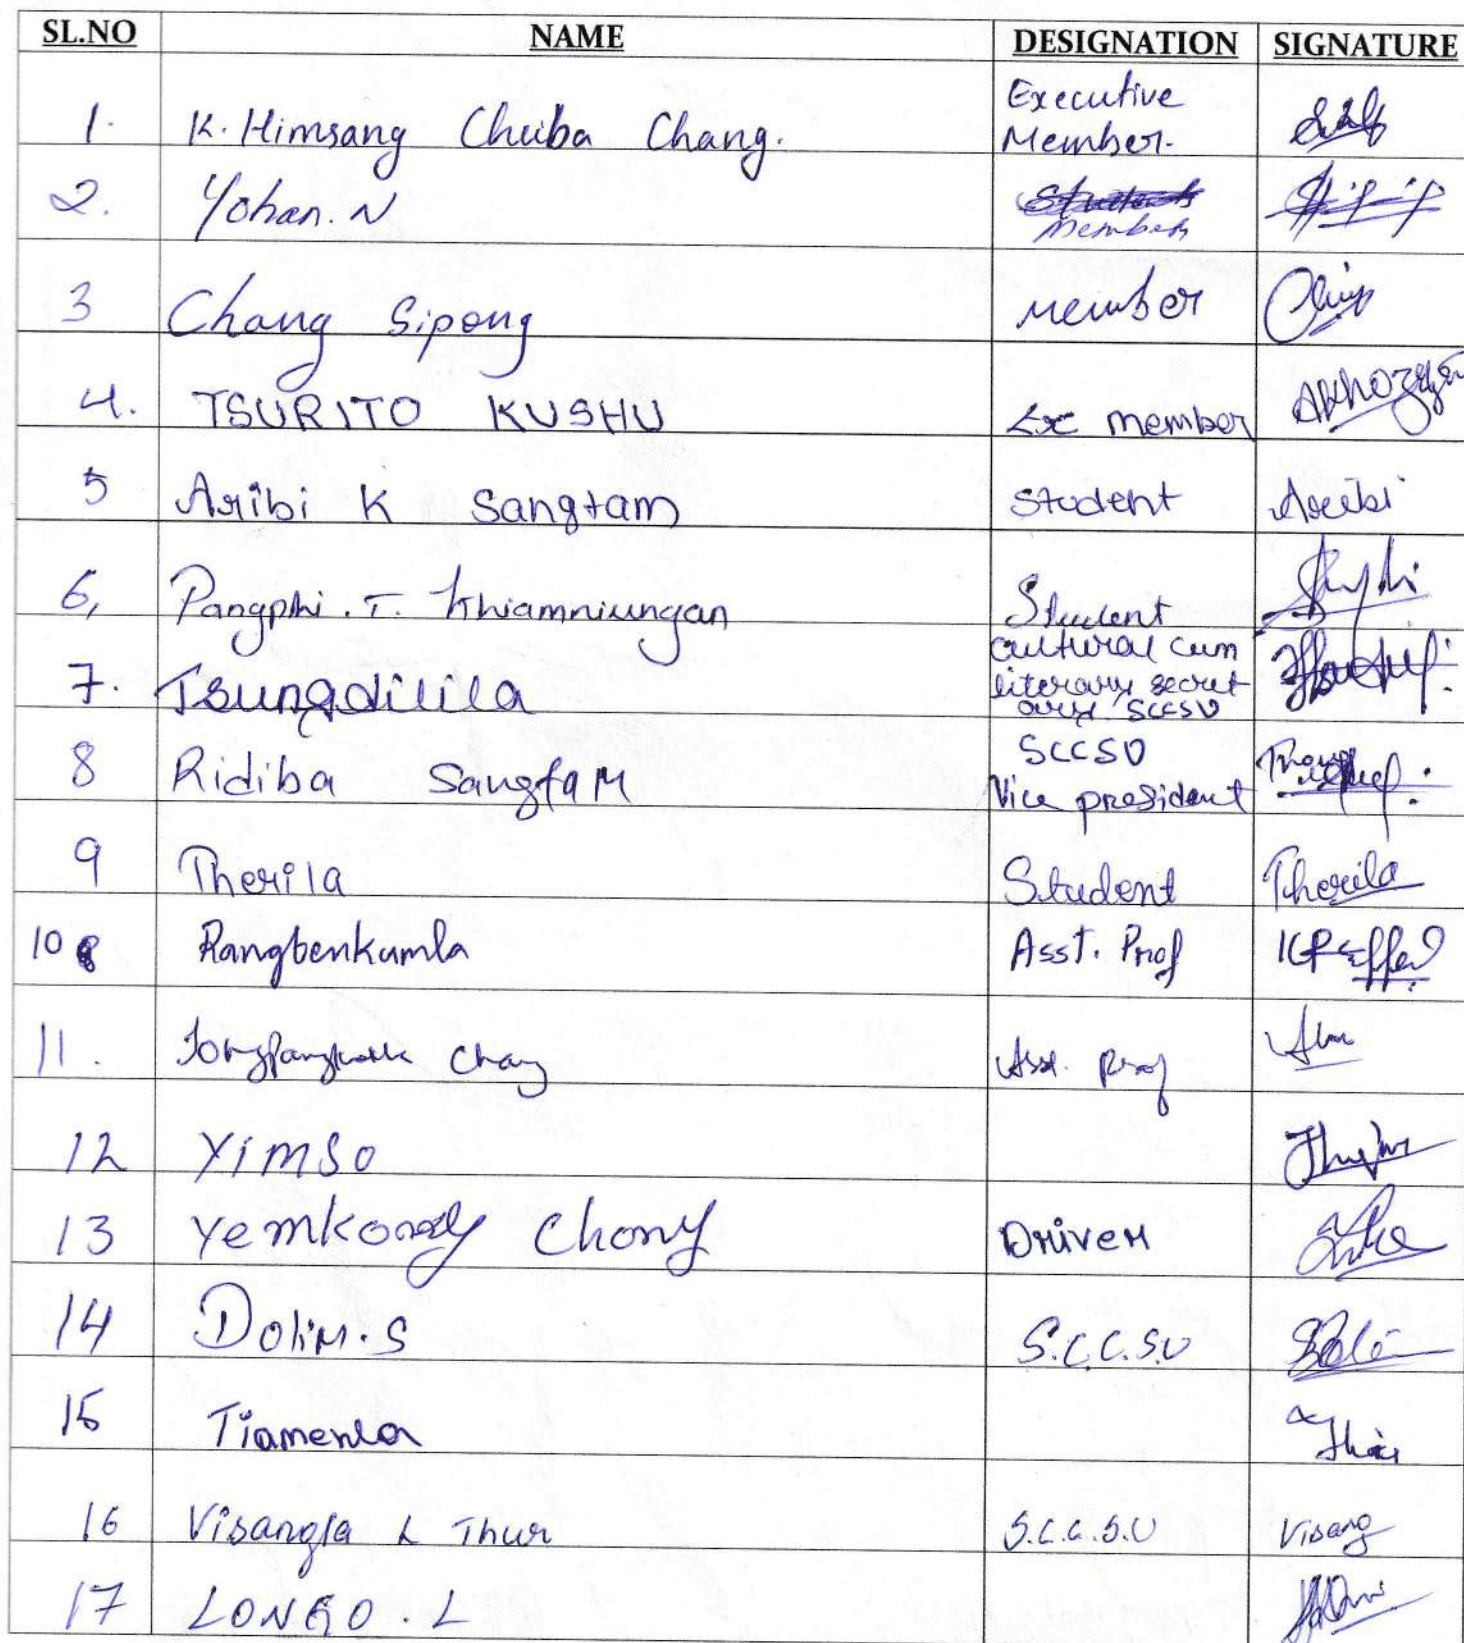 SL.NO NAME DESIGNATION SIGNATURE
1. K. Himsang Chuba Chang. Executive Member.
2. Yohan. N Member
3 Chang Sipong member
4. TSURITO KUSHU Exe member
5 Aribi K Sangtam Student Aribi
6, Pangphi . T. Khiamniungan Student
7. Tsungdilila cultural cum
literary secret
ary. SCCSU
8 Ridiba Sangtam SCCSU
Vice president
9 Therila Student Therila
10 Rangbenkumla Asst. Prof
11. Chang Asst. Prof
12 YimSo
13 Yemkong Chong Driver
14 Dolim.S S.C.C.S.U
15 Tiamenla
16 Visangla L Thur S.C.C.S.U Visang
17 LONGO . L